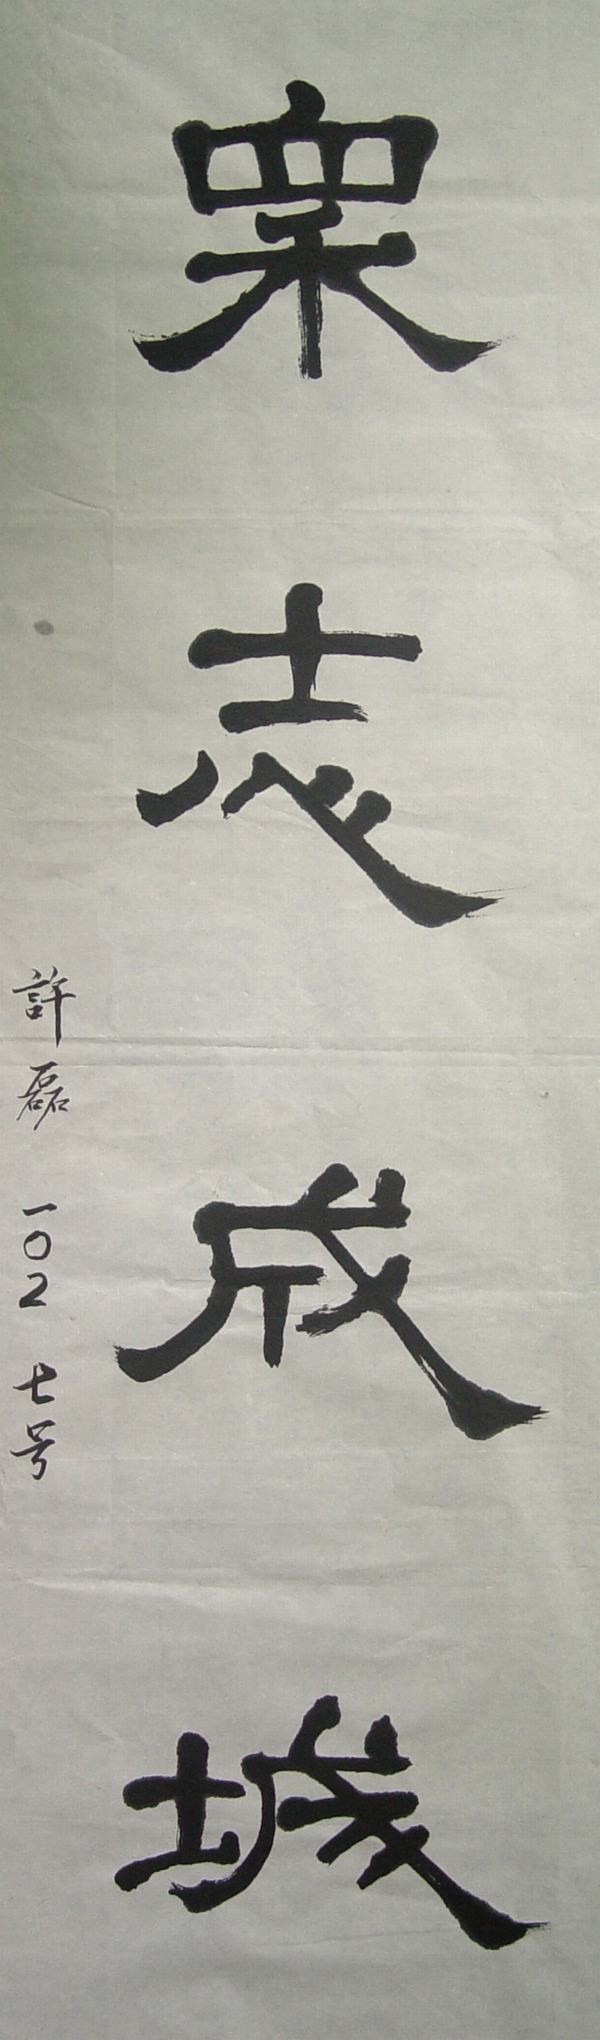 眾志成城
許磊 一〇2 七号